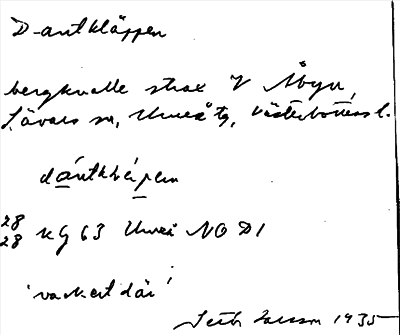 D-antkläppen
bergknalle strax V Åbyn,
Sävars sn, Umeå tg, Västerbottens l.
dántkläpen
28
28 kg 63 Umeå NO D1
'vackert där'
Seth 1935